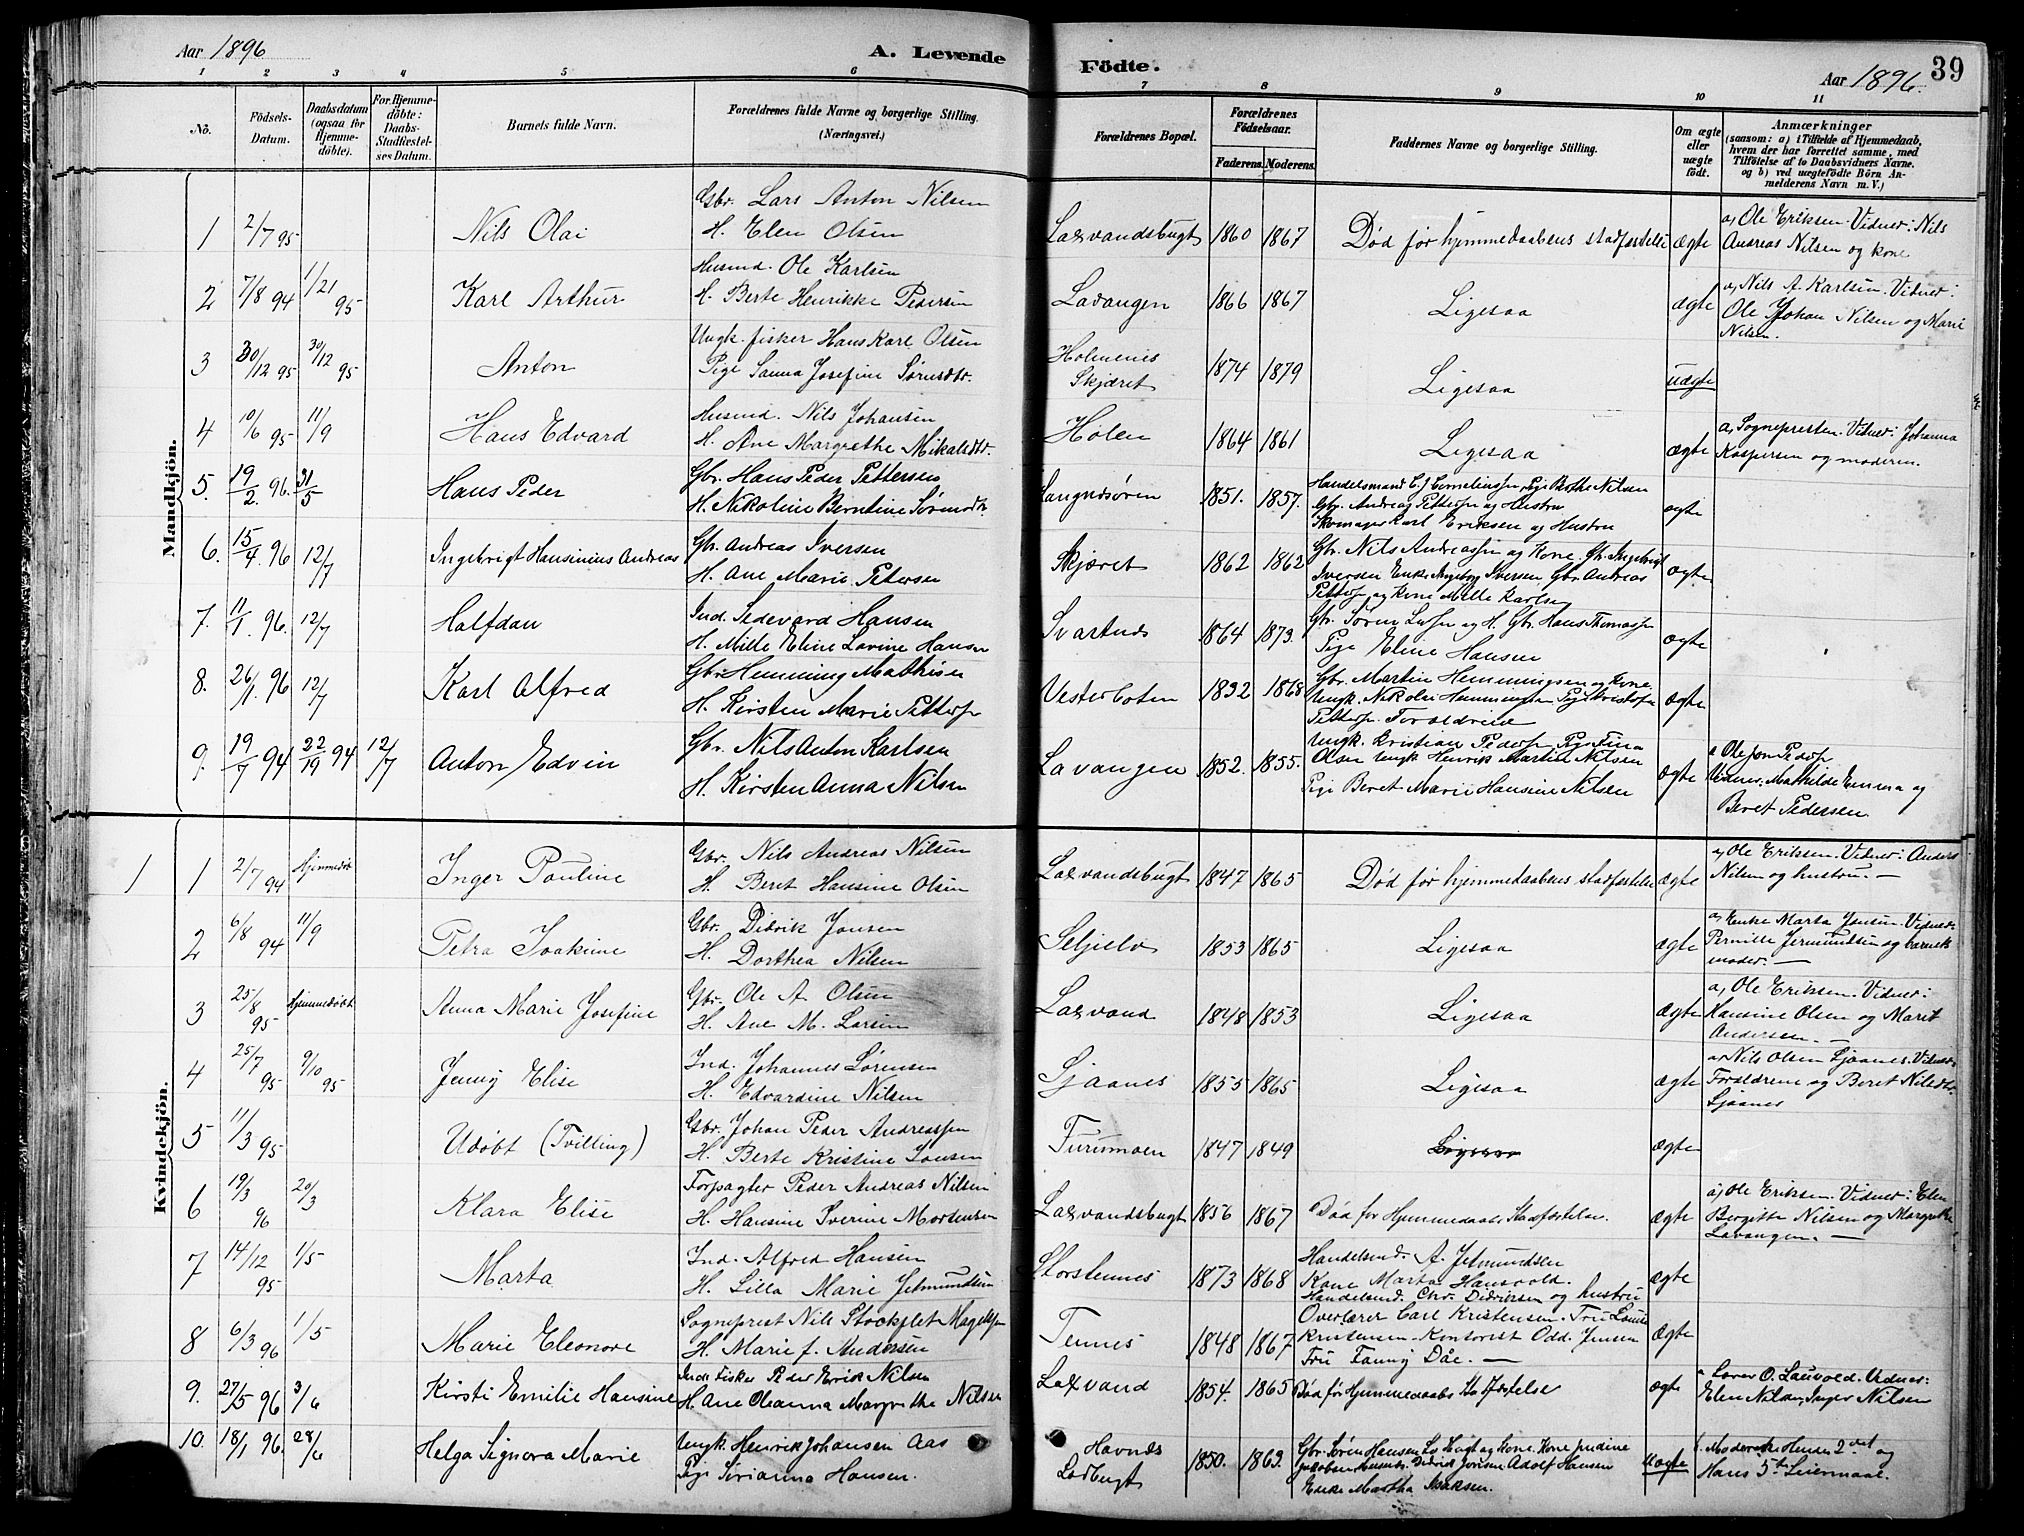 Aar 1896
A. Levende
Födte.
Aar 1896.
39
1 2 3 4 5 6 7 8 9 10 11
No.
Födsels-
Datum.
Daabsdatum
(ogsaa for
Hjemme-
döbte).
For Hjemme-
döbte:
Daabs-
Stadfæstel-
ses Datum.
Barnets fulde Navn.
Forældrenes fulde Navne og borgerlige Stilling.
(Næringsvei.)
Forældrenes Bopæl.
Forældrenes
Födselsaar.
Faderens. Moderens.
Faddernes Navne og borgerlige Stilling.
Om ægte
eller
uægte
födt.
Anmærkninger
(saasom: a) i Tilfælde af Hjemmedaab,
hvem der har forrettet samme, med
Tilföielse af to Daabsvidners Navne.
og b) ved uægtefödte Börn An-
melderens Navn m. V.)
Mandkjön.
1 2/7 95 Nils Olai Gbr. Lars Anton Nilsen
H. Elen Olsen
Laxvandsbugt 1860 1867 Død før hjemmedaabens stadfæstelse ægte a, Ole Eriksen. Vidner: Nils
Andreas Nilsen og kone
2 7/8 94 1/21 95 Karl Arthur Husmd. Ole Karlsen
H. Berte Henrikke Pedersen
Lavangen 1866 1867 Ligesaa ægte a, Nils A. Karlsen. Vidner:
Ole Johan Nilsen og Marie
Nilsen.
3 30/12 95 30/12 95 Anton Ungk. fisker Hans Karl Olsen
Pige Sanna Josefine Sørensdtr.
Holmenes
Skjæret 1874 1879 Ligesaa uægte
4 10/6 95 11/9 Hans Edvard Husmd. Nils Johansen
H. Ane Margrethe Mikalsdtr.
Holen 1864 1861 Ligesaa ægte a, Sognepresten. Vidner: Johanna
Kaspersen og moderen.
5. 19/2. 96. 31/5 Hans Peder Gbr. Hans Peder Pettersen
H. Nikoline Berntine Sørensdtr.
1851. 1857. Handelsmand Pige Berthe Nilsen
Gbr. Andreas Pettersen og Hustru
Skomager Karl Eriksen og Hustru ægte
6. 15/4. 96 12/7 Ingebrigt Hansinius Andreas Gbr. Andreas Iversen
H. Ane Marie Petersen
Skjæret 1862 1862 Gbr. Nils Andreassen og Kone. Gbr. Ingebrigt
Iversen Enke Ingeborg Iversen, Gbr. Andreas
Petters. og Kone Mille Karlsen ægte
7. 11/1. 96. 12/7 Halfdan Ind. Sedevard Hansen
H. Mille Eline Lovine Hansen
Svartnes 1864 1873. Gbr. Søren og H. Gbr. Hans Thomassen
Pige Eline Hansen ægte
8. 26/1. 96 12/7 Karl Alfred Gbr. Hemming Mathisen
H. Kirsten Marie Petters.
Vesterboten 1832 1868 Gbr. Martin Hemmingsen og Kone
Ungk. Nikolai Hemmingsen Pige
Petters. Forældrene ægte
9. 19/7 94 22/19 94 12/7 Anton Edvin Gbr. Nils Anton Karlsen
H. Kirsten Anna Nilsen
Lavangen 1852. 1855. Ungk. Kristian Peders. Pige Fina
Olsen Ungk Henrik Martin Nilsen
Pige Beret Marie Hansine Nilsen ægte Ole Peders.
Vidner: Mathilde Emma og
Beret Pedersen
Kvindekjön.
1 1 2/7 94 Hjemmedøbt Inger Pauline Gbr. Nils Andreas Nilsen
H. Beret Hansine Olsen
Laxvandsbugt 1847 1865 Død før hjemmedaabens stadfæstelse ægte a, Ole Eriksen. Vidner: Anders
Nilsen og hustru. —
2 6/8 94 11/9 Petra Joakime Gbr. Didrik Jonsen
H. Dorthea Nilsen
Seljelv 1853 1865 Ligesaa ægte a, Enke Marta Jensen. Vidner:
Pernille Jermundsen og barnets
moder. —
3 25/8 95 Hjemmedøbt Anna Marie Josefine Gbr. Ole A. Olsen
H. Ane M. Larsen
Laxvand 1848 1853 Ligesaa ægte a, Ole Eriksen. Vidner:
Hansine Olsen og Marit
Andersen. —
4 25/7 95 9/10 95 Jenny Elise Ind. Johannes Sørensen
H. Edvardine Nilsen
Sjaanes 1855 1865 Ligesaa ægte a, Nils Olsen Sjaanes. Vidner:
Forældrene og Beret Nilsdtr.
Sjaanes
5 11/3 95 Udøbt (Tvilling) Gbr. Johan Peder Andreassen
H. Berte Kristine Jonsen
Furumoen 1847 1849 Ligesaa ægte
6 19/3 96 20/3 Klara Elise Forpagter Peder Andreas Nilsen
H. Hansine Sverine Mortensen
Laxvandsbugt 1856 1867 Død før Hjemmedaabs Stadfæstelse. ægte a, Ole Eriksen. Vidner: Elen
Bergitte Nilsen og Margrethe
Lavangen. —
7 14/12 95 1/5 Marta Ind. Alfred Hansen
H. Lilla Marie Jetmundsen
Storstennes 1873 1868 Handelsmd. A. Jetmundsen
Kone Marta Hansvold.
Handelsmd. Chr. Didriksen og hustru ægte
8 6/3 96 1/5 Marie Eleonore Sogneprest Nils Stockflet Magelssen
H. Marie f. Andersen
Tennes 1848 1867 Overlærer Carl Kristensen. Fru Louise
Kristensen. Kontorist Odd. Jensen
Fru Fanny Dåe. — ægte
9. 27/5 96 3/6 Kirsti Emilie Hansine Ind. Fisker Peder Erik Nilsen
H. Ane Oleanna Margrethe Nilsen
Laxvand 1854. 1865 Død før Hjemmedaabs Stadfæstelse ægte Lærer O. Lauvold. Vidner:
Elen Nilsen, Inger Nilsen
10. 18/1 96. 28/6 Helga Signora Marie Ungk. Henrik Johansen Aas
Pige Sirianna Hansen.
Havnes
Lodbugt 1850. 1863. Gbr. Søren Hansen og Kone. Kone
Didrik Jonsen Adolf Hansen
Enke Martha Isaksen. uægte Moderen Hendes 2det og
Hans 5te Leiermaal.